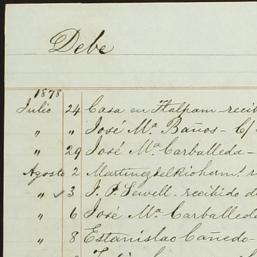 Debe
1878
Julio 24 Casa en Tlalpam - recib
" " José Ma. Baños - C/
" 29 José Ma. Carballeda -
Agosto 2 Martinez
" 3 J. P. Sewell - recibido d
" 6 José Ma. Carballeda
" 8 Estanislao Cañedo -